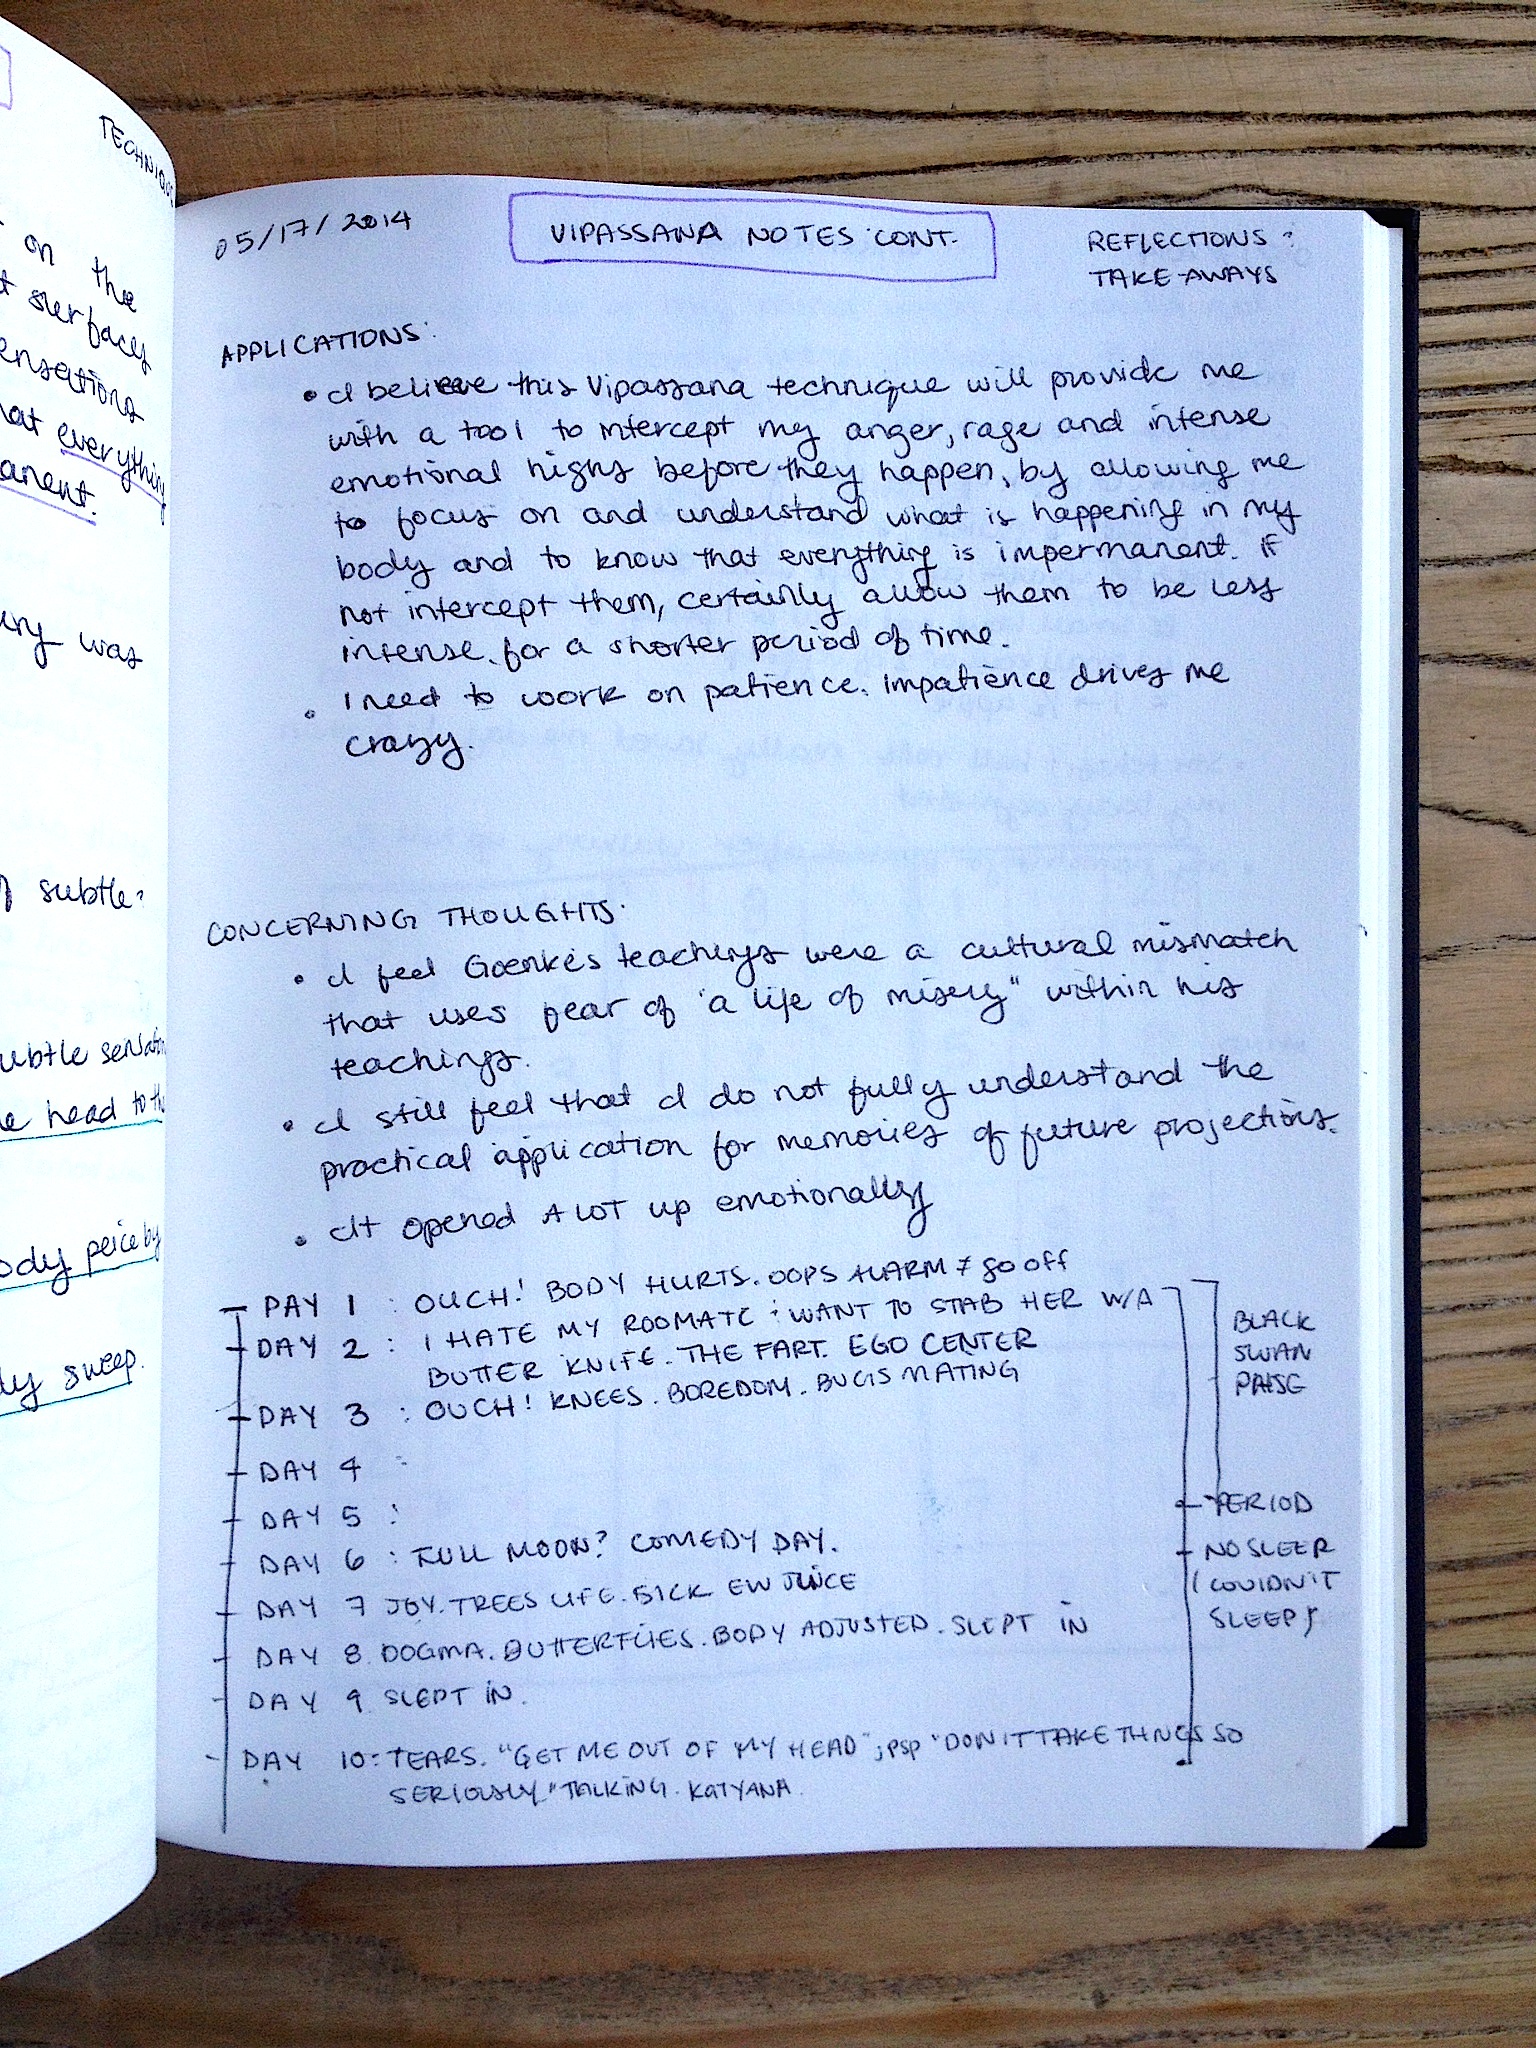 TECHNIQUE
on the
surfaces
ensations
hat everything
anent.
was
subtle
subtle sensation
e head to th
ody peice by
dy sweep.
05/17/2014
VIPASSANA NOTES CONT.
REFLECTIONS
TAKE-AWAYS
APPLICATIONS:
• I believe this Vipassana technique will provide me
with a tool to intercept my anger, rage and intense
emotional highs before they happen, by allowing me
to focus on and understand what is happening in my
body and to know that everything is impermanent. If
not intercept them, certainly allow them to be less
intense, for a shorter period of time.
• I need to work on patience. Impatience drives me
crazy.
CONCERNING THOUGHTS:
• I feel Goenke's teachings were a cultural mismatch
that uses fear of "a life of misery" within his
teachings.
• I still feel that I do not fully understand the
practical application for memories of future projections.
• It opened A LOT up emotionally
DAY 1 : OUCH! BODY HURTS. OOPS ALARM ≠ go off
DAY 2 : I HATE MY ROOMATE & WANT TO STAB HER W/A
BUTTER KNIFE. THE FART. EGO CENTER
DAY 3 : OUCH! KNEES. BOREDOM. BUGS MATING
DAY 4 :
DAY 5 :
DAY 6 : FULL MOON? COMEDY DAY.
DAY 7 JOY. TREES LIFE. SICK EW JUICE
DAY 8. DOGMA. BUTTERFLIES. BODY ADJUSTED. SLEPT IN
DAY 9 SLEPT IN.
DAY 10: TEARS. "GET ME OUT OF MY HEAD"; psp "DON'T TAKE THINGS SO
SERIOUSLY" TALKING. KATYANA.
BLACK
SWAN
PERIOD
NO SLEEP
(COULDN'T
SLEEP)